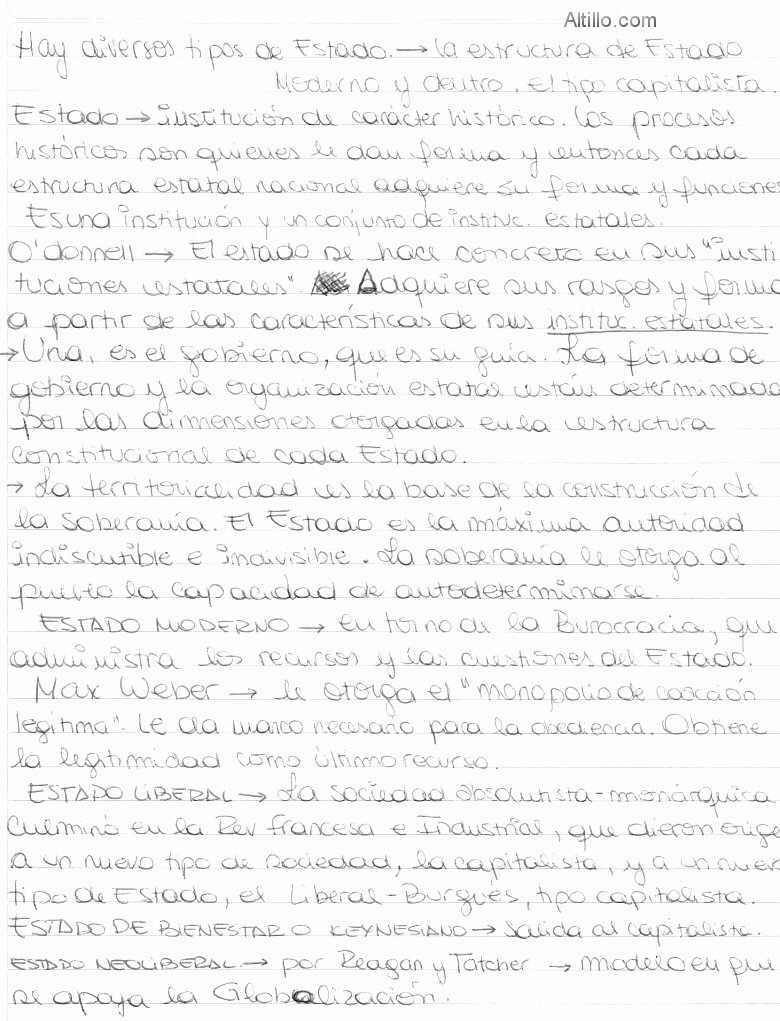 Altillo.com
Hay diversos tipos de Estado. → la estructura de Estado
Moderno y dentro, el tipo capitalista.
Estado → institución de carácter histórico. Los procesos
históricos son quienes le dan forma y entonces cada
estructura estatal nacional adquiere su forma y funciones
Es una institución y un conjunto de instituc. estatales.
O'donnell → El estado se hace concreto en sus "insti
tuciones estatales" Adquiere sus rasgos y forma
a partir de las características de sus instituc. estatales.
→ Una, es el gobierno, que es su guía. La forma de
gobierno y la organización estatal están determinada
por las dimensiones otorgadas en la estructura
constitucional de cada Estado.
→ La territorialidad es la base de la construcción de
la soberanía. El Estado es la máxima autoridad
indiscutible e indivisible. La soberanía le otorga al
pueblo la capacidad de autodeterminarse.
ESTADO MODERNO → En torno de la Burocracia, que
administra los recursos y las cuestiones del Estado.
Max Weber → le otorga el "monopolio de coacción
legítima". Le da marco necesario para la obediencia. Obtiene
la legitimidad como último recurso.
ESTADO LIBERAL → La sociedad absolutista-monárquica
culminó en la Rev francesa e Industrial, que dieron orige
a un nuevo tipo de sociedad, la capitalista, y a un nuev
tipo de Estado, el Liberal-Burgués, tipo capitalista.
ESTADO DE BIENESTAR O KEYNESIANO → Salida al capitalista.
ESTADO NEOLIBERAL. → por Reagan y Tatcher → modelo en que
se apoya la Globalización.